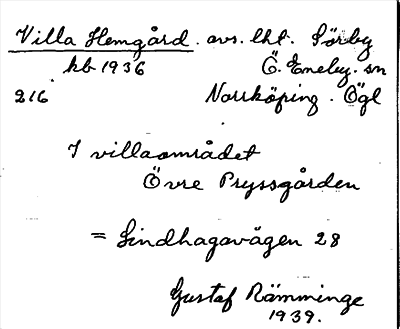 Villa Hemgård. avs. lht. Sörby
kb 1936 Ö. Eneby. sn
216 Norrköping. Ögl
I villaområdet
Övre Pryssgården
= Lindhagavägen 28
Gustaf Rämminge
1939.